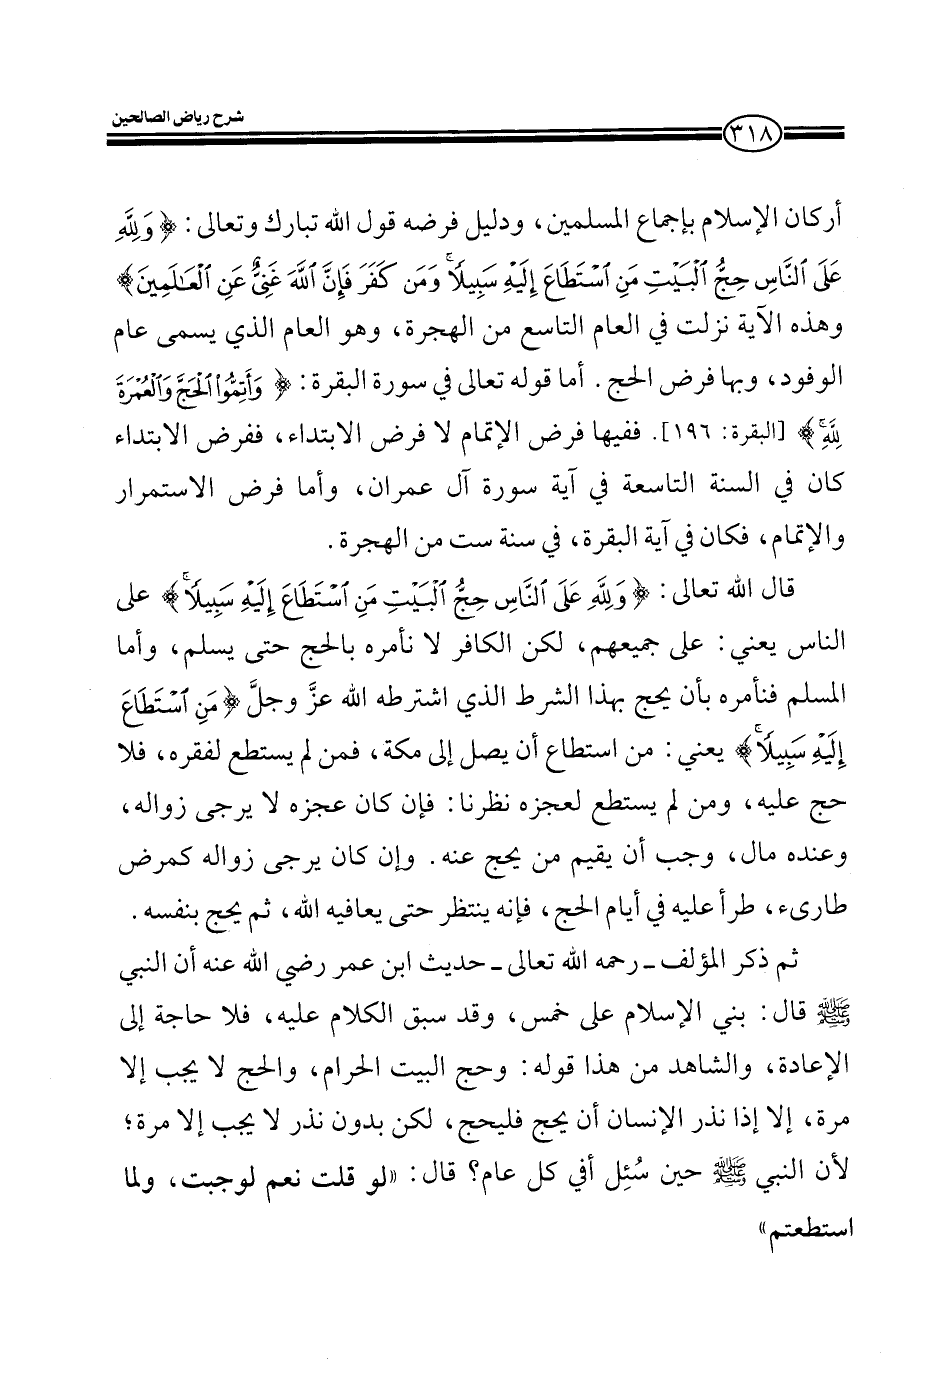 شرح رياض الصالحين
٣١٨
أركان الإسلام بإجماع المسلمين، ودليل فرضه قول الله تبارك وتعالى: ﴿ وَلِلَّهِ
عَلَى ٱلنَّاسِ حِجُّ ٱلْبَيْتِ مَنِ ٱسْتَطَاعَ إِلَيْهِ سَبِيلًاۚ وَمَن كَفَرَ فَإِنَّ ٱللَّهَ غَنِيٌّ عَنِ ٱلْعَالَمِينَ ﴾
وهذه الآية نزلت في العام التاسع من الهجرة، وهو العام الذي يسمى عام
الوفود، وبها فرض الحج. أما قوله تعالى في سورة البقرة: ﴿ وَأَتِمُّوا۟ ٱلْحَجَّ وَٱلْعُمْرَةَ
لِلَّهِۚ ﴾ [البقرة: ١٩٦]. ففيها فرض الإتمام لا فرض الابتداء، ففرض الابتداء
كان في السنة التاسعة في آية سورة آل عمران، وأما فرض الاستمرار
والإتمام، فكان في آية البقرة، في سنة ست من الهجرة.
قال الله تعالى: ﴿ وَلِلَّهِ عَلَى ٱلنَّاسِ حِجُّ ٱلْبَيْتِ مَنِ ٱسْتَطَاعَ إِلَيْهِ سَبِيلًاۚ ﴾ على
الناس يعني: على جميعهم، لكن الكافر لا نأمره بالحج حتى يسلم، وأما
المسلم فنأمره بأن يحج بهذا الشرط الذي اشترطه الله عزَّ وجلَّ ﴿ مَنِ ٱسْتَطَاعَ
إِلَيْهِ سَبِيلًاۚ ﴾ يعني: من استطاع أن يصل إلى مكة، فمن لم يستطع لفقره، فلا
حج عليه، ومن لم يستطع لعجزه نظرنا: فإن كان عجزه لا يرجى زواله،
وعنده مال، وجب أن يقيم من يحج عنه. وإن كان يرجى زواله كمرض
طارىء، طرأ عليه في أيام الحج، فإنه ينتظر حتى يعافيه الله، ثم يحج بنفسه.
ثم ذكر المؤلف ـ رحمه الله تعالى ـ حديث ابن عمر رضي الله عنه أن النبي
ﷺ قال: بني الإسلام على خمس، وقد سبق الكلام عليه، فلا حاجة إلى
الإعادة، والشاهد من هذا قوله: وحج البيت الحرام، والحج لا يجب إلا
مرة، إلا إذا نذر الإنسان أن يحج فليحج، لكن بدون نذر لا يجب إلا مرة؛
لأن النبي ﷺ حين سُئِل أفي كل عام؟ قال: «لو قلت نعم لوجبت، ولما
استطعتم»